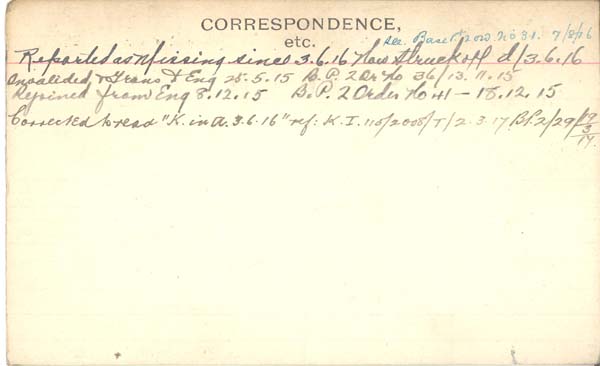 CORRESPONDENCE,
etc.
See Base Pt 2 O. No 31. 7/8/16
Reported as missing since 3.6.16 Now struck off d/3.6.16
Invalided & Trans to Eng 25.5.15 B.P. 2 Or No 36/13.11.15
Rejoined from Eng 8.12.15 B.P. 2 Order No 41 - 18.12.15
Corrected to read "K. in A. 3.6.16" ref: K.I. 110/2008/T/2.3.17 B.P.2/29/19/3/17.